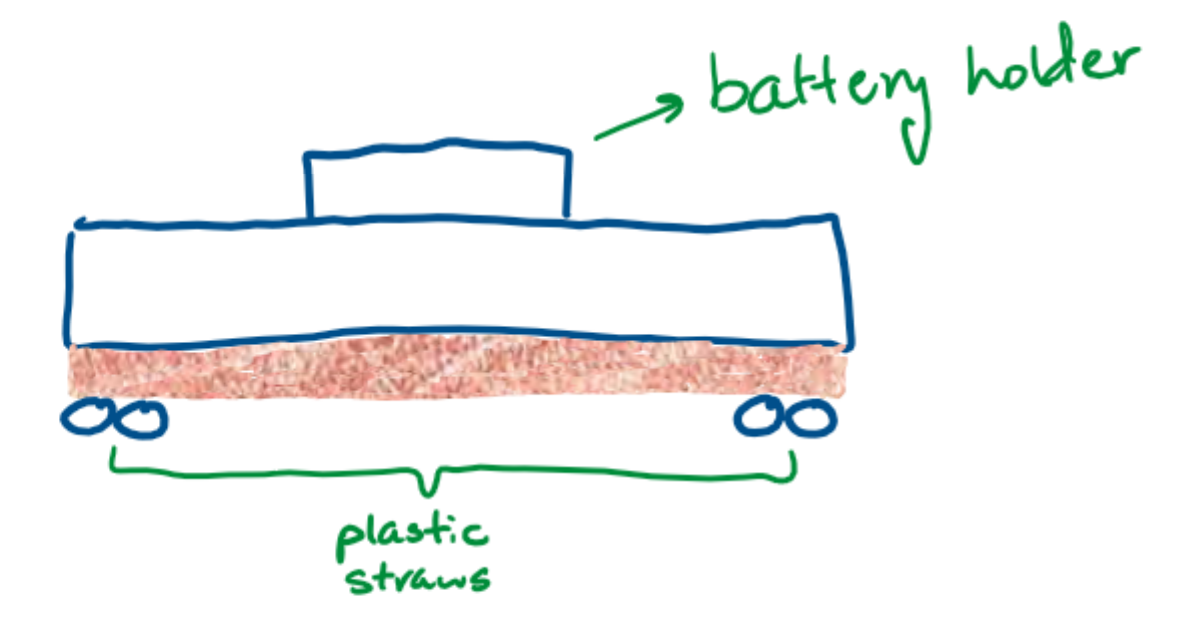 battery holder
plastic
straws